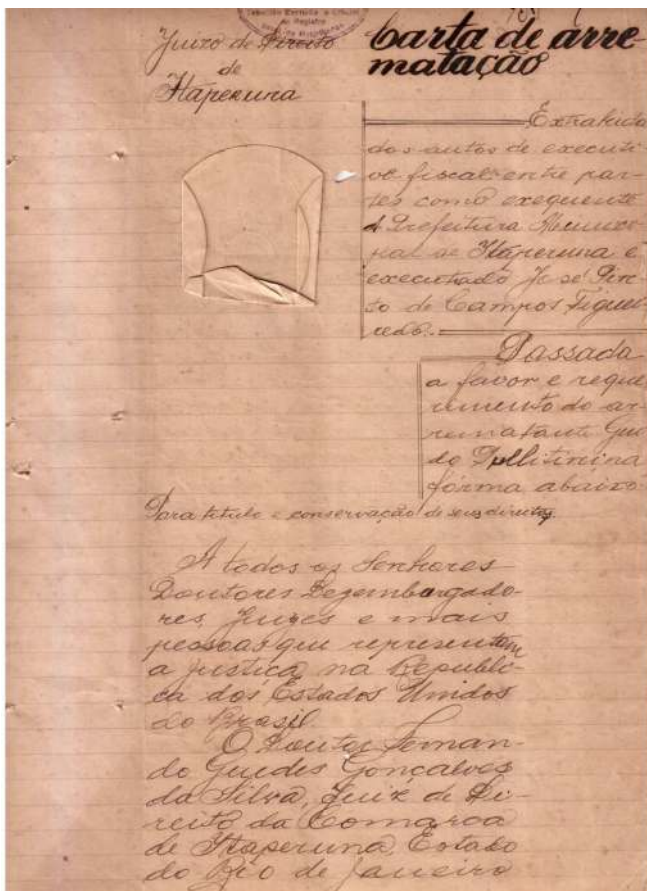 Juizo de Direito
de
Itaperuna
Carta de arre-
matação
Extrahida
dos autos de executi-
vo fiscal entre par-
tes como exequente
a Prefeitura Munici-
pal de Itaperuna e
executado José Pin-
to de Campos Figuei-
redo.
Passada
a favor e reque-
rimento do ar-
rematante Gui-
do
forma abaixo:
Para titulo e conservação de seus direitos.
A todos os Senhores
Doutores Dezembargado-
res, Juizes e mais
pessoas que representam
a justiça na Republi-
ca dos Estados Unidos
do Brasil.
O Doutor Fernan-
do Guedes Gonçalves
da Silva, Juiz de Di-
reito da Comarca
de Itaperuna, Estado
do Rio de Janeiro